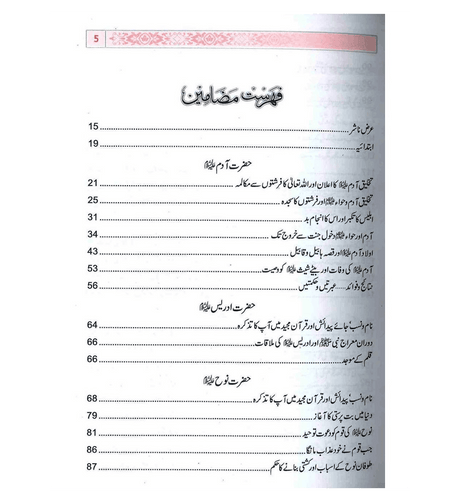 5
فہرست مضامین
عرض ناشر 15
ابتدائیہ 19
حضرت آدم علیہ السلام
تخلیق آدم علیہ السلام کا اعلان اور اللہ تعالیٰ کا فرشتوں سے مکالمہ 21
تخلیق آدم وحواء علیہما السلام اور فرشتوں کا سجدہ 25
ابلیس کا تکبر اور اس کا انجام بد 31
آدم اور حواء علیہما السلام دخول جنت سے خروج تک 34
اولاد آدم علیہ السلام اور قصہ ہابیل و قابیل 43
آدم علیہ السلام کی وفات اور بیٹے شیث علیہ السلام کو وصیت 53
نتائج و فوائد.....عبرتیں و حکمتیں 56
حضرت ادریس علیہ السلام
نام و نسب جائے پیدائش اور قرآن مجید میں آپ کا تذکرہ 64
دوران معراج نبی ﷺ اور ادریس علیہ السلام کی ملاقات 66
قلم کے موجد 66
حضرت نوح علیہ السلام
نام و نسب پیدائش اور قرآن مجید میں آپ کا تذکرہ 68
دنیا میں بت پرستی کا آغاز 79
نوح علیہ السلام کی قوم کو دعوت توحید 81
جب قوم نے خود عذاب مانگا 86
طوفان نوح کے اسباب اور کشتی بنانے کا حکم 87